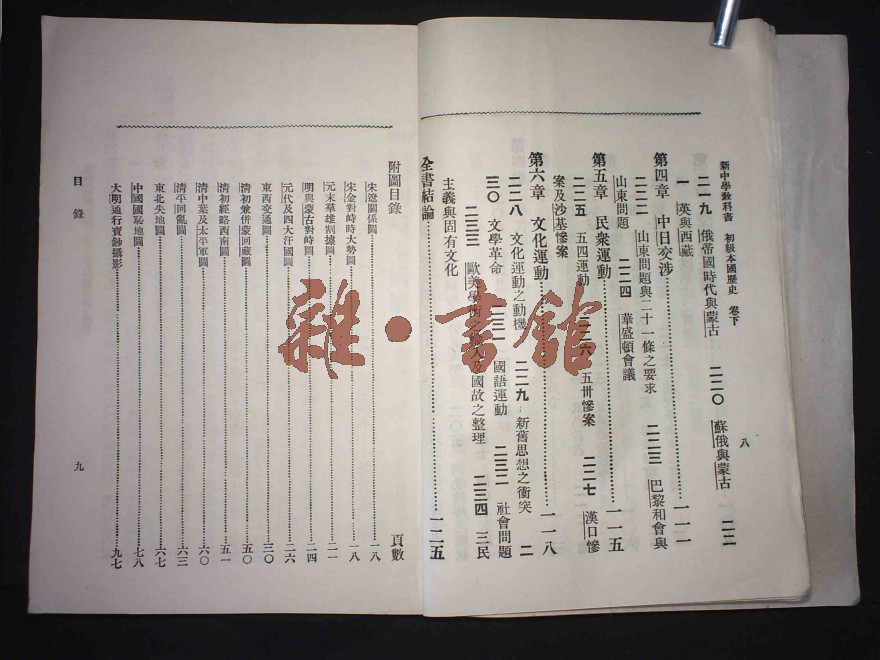 新中學教科書 初級本國歷史 卷下
八
二一九 俄帝國時代與蒙古 二二〇 蘇俄與蒙古 二二
一 英與西藏
第四章 中日交涉……一一一
二二二 山東問題與二十一條之要求 二二三 巴黎和會與
山東問題 二二四 華盛頓會議
第五章 民衆運動……一一五
二二五 五四運動 二二六 五卅慘案 二二七 漢口慘
案及沙基慘案
第六章 文化運動……一一八
二二八 文化運動之動機 二二九 新舊思想之衝突 二
三〇 文學革命 二三一 國語運動 二三二 社會問題
二三三 歐美學術之輸入及國故之整理 二三四 三民
主義與固有文化
全書結論……一二五
附圖目錄 頁數
宋遼關係圖……一八
宋金對峙時大勢圖……一八
元末羣雄割據圖……二一
明與蒙古對峙圖……二四
元代及四大汗國圖……二六
東西交通圖……三〇
清初兼併蒙回藏圖……五〇
清初經略西南圖……五一
清中葉及太平軍圖……六〇
清平回亂圖……六三
東北失地圖……六七
中國國恥地圖……七八
大明通行寶鈔攝影……九七
目錄
九
雜·書館